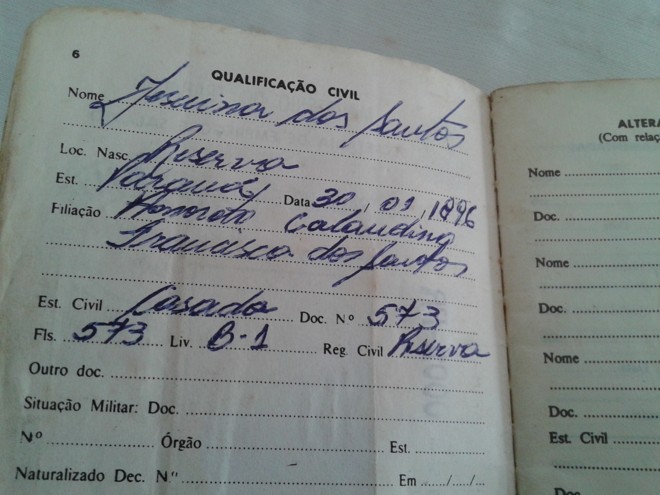 6
QUALIFICAÇÃO CIVIL
Nome dos Santos
Loc. Nasc. Reserva
Est. Paraná Data 30, 01, 1896
Filiação Honorato
Francisca dos Santos
Est. Civil Casada Doc. Nº 573
Fls. 573 Liv. B-1 Reg. Civil Reserva
Outro doc.
Situação Militar: Doc.
Nº Órgão Est.
Naturalizado Dec. Nº Em / /
ALTERA
(Com relaç
Nome
Doc.
Nome
Doc.
Nome
Doc.
Est. Civil
Doc.